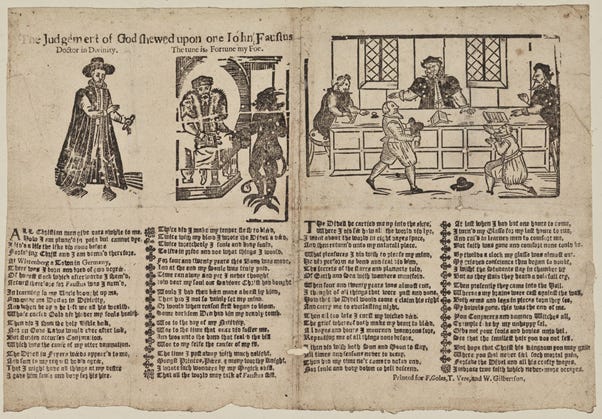 The Judgement of God shewed upon one Iohn Faustus
Doctor in Divinity. The tune is, Fortune my Foe.
ALL Christian men give eare awhile to me,
How I am plung'd in pain but cannot dye,
I liv'd a life the like did none before
Forsaking Christ and I am damn'd therefore
At Wittenberge a Town in Germany,
There was I born and bred of good degree,
Of honest Stock which afterwards I sham'd,
Accurst therefore for Faustus was I nam'd.
In learning
And made me Doctor in Divinity,
And when he dy'd he left me all his wealth,
Whose cursed Gold did hinder my souls health
Then did I shun the holy Bible book,
Nor on Gods word would ever after look,
But studied accursed Conjuration,
Which was the cause of my utter Damnation.
The Devil in Fryers weeds appear'd to me,
And streight to my request he did agree,
That I might have all things at my desire
I gave him soule and body for his hire.
Twice did I make my tender flesh to bleed,
Twice with my blood I wrote the Devils deed,
Twice wretchedly I soule and body sold,
To live in
For four and twenty years this bond was made,
And at the end my soule was truly paid,
Time ran away and yet I never thought
How dear my soul our Saviour Christ had bought
Would I had then been made a beast by kinde,
Then had not I so vainly set my minde,
Or would when reason first began to bloom,
Some darksome Den had been my deadly tomb.
Woe to the day of my Nativity,
Woe to the time that once did foster me,
And woe unto the hand that
Woe to my selfe the cause of my ill.
The time I past away with much delight,
'Mongst Princes, Peers, a many worthy Knight,
I wrought such wonders by my Magick skill
That all the world may talk of Faustus still.
THe Devil he carried me up into the skie,
Where I did see how all the world did lye,
I went about the world in eight dayes space
And then return'd unto my native place.
What pleasure I did wish to please my minde,
He did perform as bond and seal did bind,
The secrets of the stars and planets told,
Of Earth and Sea with wonders manifold
When four and twenty years was almost run,
I thought of all things that were past and done,
How that the Devil would soon claim his right
And carry me to everlasting night.
Then all too late I curst my wicked deed
The grief whereof doth make my heart to bleed,
All dayes and hours I mourned wondrous sore,
Repenting me of all things done before.
I then did wish both Sun and Moon to stay,
All times and seasons never to decay,
Then had my time ne'r come to dated end,
Nor soule and body down to hell descend.
At last when I had but one houre to come,
I turn'd my Glasse for my last houre to run,
And call'd in learned men to comfort me,
But faith was gone and none could comfort me.
By twelve a clock my glasse was almost out,
My grieved conscience then began to doubt,
I wisht the Students stay in chamber by
But as they staid they heard a dreadful cry.
Then presently they came into the Hall,
Whereas my brains were cast against the wall,
Both armes and legs in pieces torn they see,
My bowels gone, this was the end of me.
You Conjurors and damned Witches all,
Example take by my unhappy fall,
Give not your souls and bodies unto hell,
See that the smallest hair you do not sell.
But hope that Christ his Kingdom you may gain
Where you shall never fear such mortal pain,
Forsake the Devil and all his crafty wayes,
Imbrace true faith which never more decayes.
Printed for F. Coles, T. Vere, and W. Gilbertson.